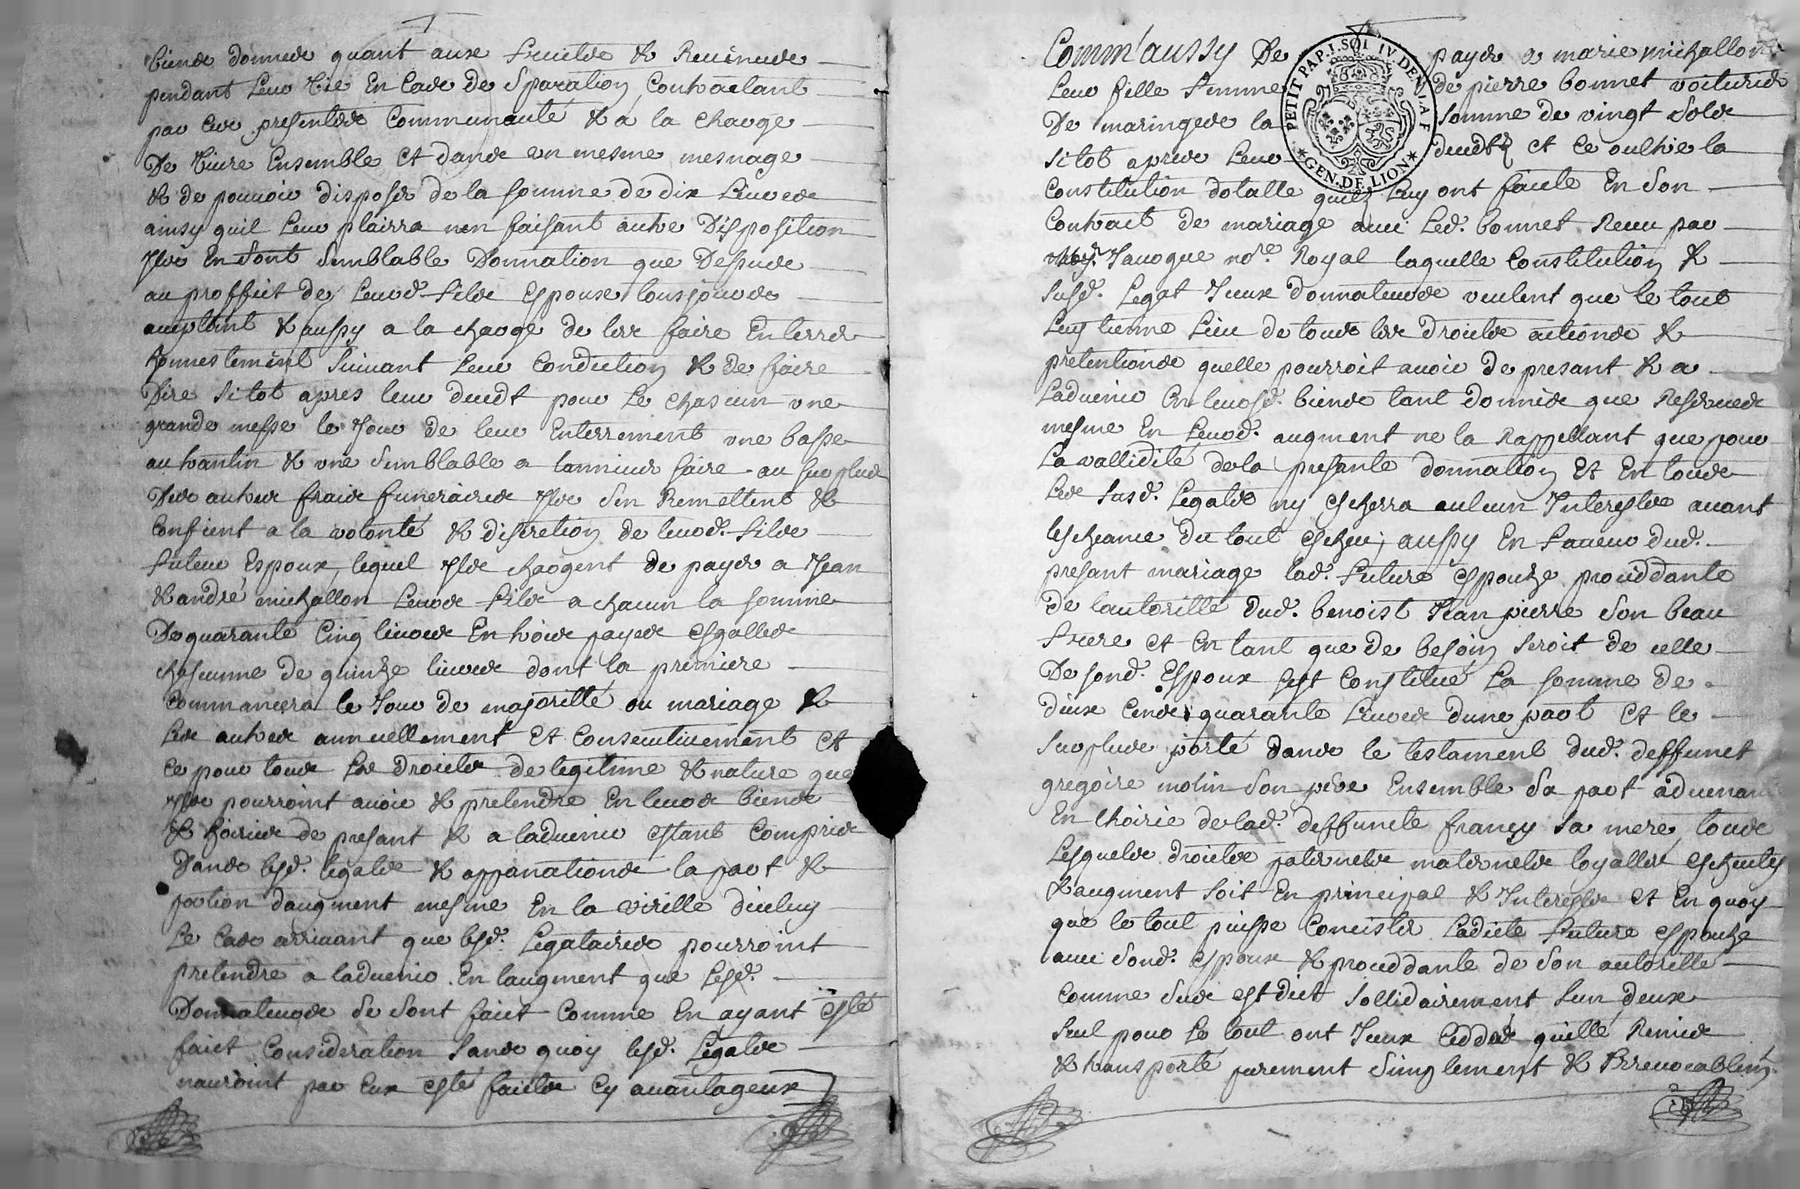 biens donnés quant aux fruits & Revenus
pendant Leur Vie En Cas de Separation Contractant
par Ces presentes Communauté & á la charge
De Vivre Ensemble et dans un mesme mesnage
& de pouvoir disposer de la somme de dix Livres
ainsy quil Leur plairra non faisant autre Disposition
Ils En font semblable Donnation que Dessus
au proffict de Leurd. fils Espoux tousjours
acceptant & aussy a la charge de les faire Enterrer
honnestement suivant Leur Condiction & de faire
Dire sitot apres leur decedt pour Le chascun une
grande messe le Jour de leur Enterrement une basse
au & une semblable a lannuel faire au surplus
Des autres frais funeraires Ils sen Remettent &
Confient a la volonté & discretion de leurd. fils
futeur Espoux, lequel Ils chargent de payer a Jean
& andré michallon Leurs fils a chacun la somme
De quarante Cinq livres En trois payes Esgalles
chascunne de quinze livres dont la premiere
Commancera le Jour de majorité ou mariage &
Les autres annuellement Et Consecutivement et
Ce pour tous Les Droits de legitime & nature que
Ils pourroint avoir & pretendre En leurs biens
& hoiries de presant & a ladvenir Estant Compris
Dans lesd. legats & appanations la part &
portion daugment mesme En la virille diceluy
Le Cas arrivant que lesd. Legataires pourroint
pretendre a ladvenir En laugment que Lesd.
Donnateurs se sont faict Comme En ayant esté
faict Consideration sans quoy lesd. Legats
nauroint par Eux esté faicts Cy avantageux
Comm'aussy De payer a marie michallon
Leur fille femme de pierre bonnet voiturier
De maringes la somme de vingt sols
sitot apres Leur decedtz et ce oultre la
Constitution dotalle quilz Luy ont faicte En son
Contract de mariage avec Led. bonnet Receu par
Jacogue no.re Royal laquelle Constitution &
susd. Legat Iceux donnateurs veulent que le tout
Luy tienne Lieu de tous les droits actions &
pretentions quelle pourroit avoir de presant & a
Ladvenir En leursd. biens tant donnés que Reservés
mesme En Leurd. augment ne la Rappellant que pour
La vallidité de la presente donnation Et En tous
Les susd. Legats ny Escherra aulcun Interests avant
lescheance du tout Escheu; aussy En faveur dud.
presant mariage lad. future Espouze procedante
de lautoritté dud. benoist Jean pierre son beau
frere et En tant que de besoin seroit de celle
De sond. Espoux sest Constitué La somme de
deux Cents quarante Livres dune part et le
surplus porté dans le testament dud. deffunct
gregoire molin son pere Ensemble sa part advenant
En lhoirie de lad. deffuncte françy sa mere, tous
Lesquels droits paternels maternels loyalles escheutes
& augment soit En principal & Interests Et En quoy
que le tout puisse Concister Ladicte future espouze
avec sond. Espoux & procedante de son autoritté
Comme sus est dict sollidairement lun deux
seul pour Le tout ont Iceux Ceddé quitté Remis
& transporté purement simplement & Irrevocablemt.
PETIT PAP. 1. SOL IV. DEN. LA F
GEN. DE LION